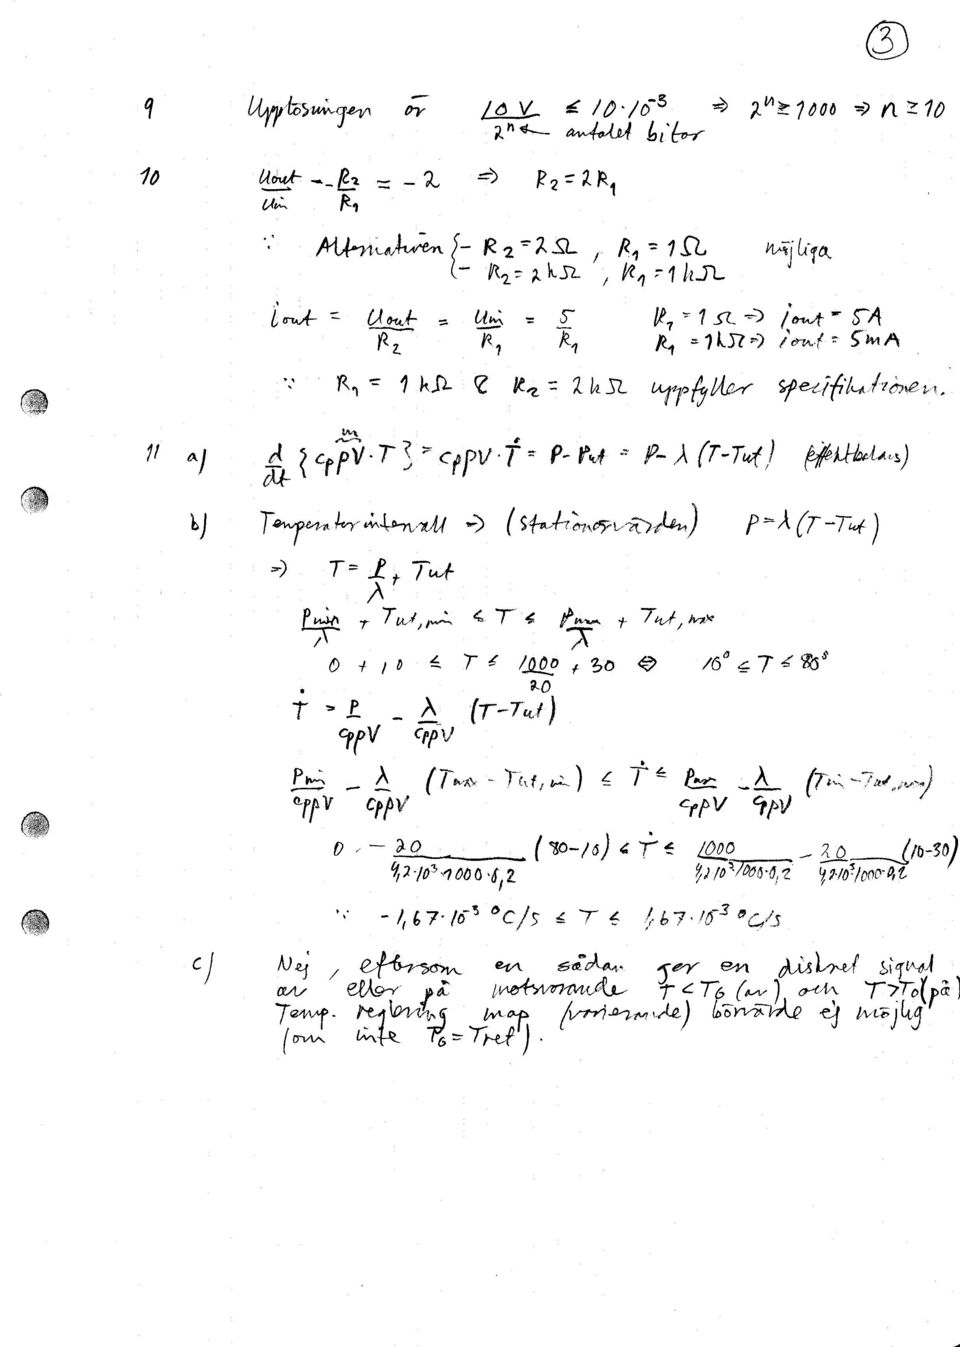 3
9 Upplösningen är 10 V / 2^n ≤ 10·10^-3 ⇒ 2^n ≥ 1000 ⇒ n ≥ 10
← antalet bitar
10 Uout/Uin = -R2/R1 = -2 ⇒ R2 = 2R1
∵ Alternativen { - R2 = 2Ω , R1 = 1Ω möjliga
- R2 = 2kΩ , R1 = 1kΩ
iout = Uout/R2 = Uin/R1 = 5/R1 R1 = 1Ω ⇒ iout = 5A
R1 = 1kΩ ⇒ iout = 5mA
∵ R1 = 1kΩ & R2 = 2kΩ uppfyller specifikationen.
m
11 a) d/dt { cpρV·T } = cpρV·Ṫ = P - Put = P - λ(T-Tut) (effektbalans)
b) Temperaturintervall ⇒ (stationärvärden) P = λ(T-Tut)
⇒ T = P/λ + Tut
Pmin/λ + Tut,min ≤ T ≤ Pmax/λ + Tut,max
0 + 10 ≤ T ≤ 1000/20 + 30 ⇔ 10° ≤ T ≤ 80°
Ṫ = P/cpρV - λ/cpρV (T-Tut)
Pmin/cpρV - λ/cpρV (Tmax - Tut,min) ≤ Ṫ ≤ Pmax/cpρV - λ/cpρV (Tmin - Tut,max)
0 - 20/4,2·10^3·1000·0,2 (80-10) ≤ Ṫ ≤ 1000/4,2·10^3·1000·0,2 - 20/4,2·10^3·1000·0,2 (10-30)
∵ -1,67·10^-3 °C/s ≤ T ≤ 1,67·10^-3 °C/s
c) Nej, eftersom en sådan ger en diskret signal
av eller på motsvarande T < T0 (av) och T > T0 (på)
Temp. reglering map (varierande) börvärde ej möjlig
(om inte T0 = Tref).